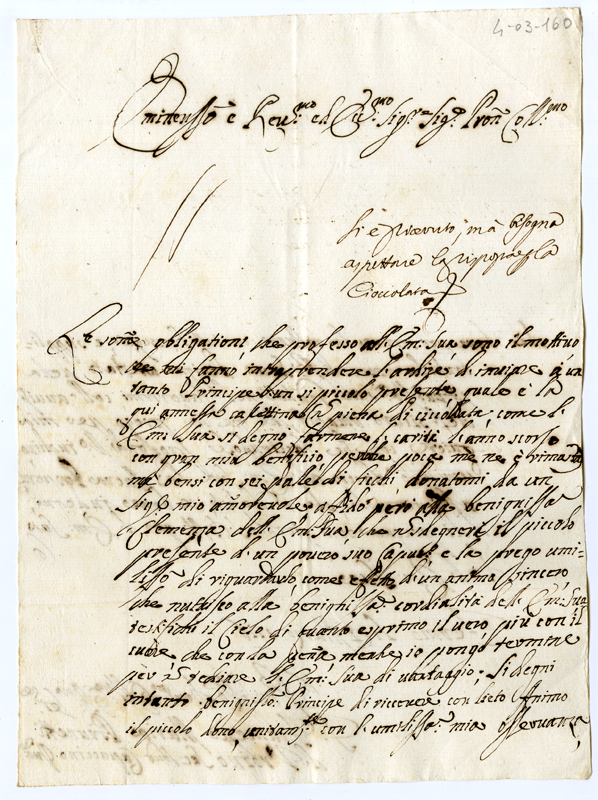 4-03-160
Eminentissõ e Reu.mo ed Ill.mo Sig.r Sig.r Prõn Coll.mo
Si è riceuuto, ma bisogna
aspettare la risposta
Cioccolata
Le somẽ obligationi che professo all'Em: Sua sono il mottiuo
che mi fanno intraprendere l'ardire d'inuiare à un
tanto Principe un si piccolo presente quale è la
qui annessa casettina pietra di cicolata, come l'
Em: Sua si degnò farmene la carità l'anno scorso
con gran mio benificio perche poca me ne è rimasta
ma bensi con sei palle di fichi donatomi da un
Sigr̃ mio amoreuole affido però alla benignissa
Clemenza dell'Em: Sua che nõ sdegnerà il piccolo
presente d'un pouero suo Capuc: e la prego umi-
lissõ di riguardarlo come effetto d'un animo sincero
che nutrisco alla benignissa: cordialità dell'Em: Sua
testifichi il Cielo di quanto esprimo il uero più con il
cuore che con la penna mentre io pongo termine
per nõ tediare l'Em: Sua di uantaggio; Si degni
intanto benignisso: Principe di riceuere con lieto Animo
il piccolo dono unitam.te con l'umilissa: mia osseruanza,